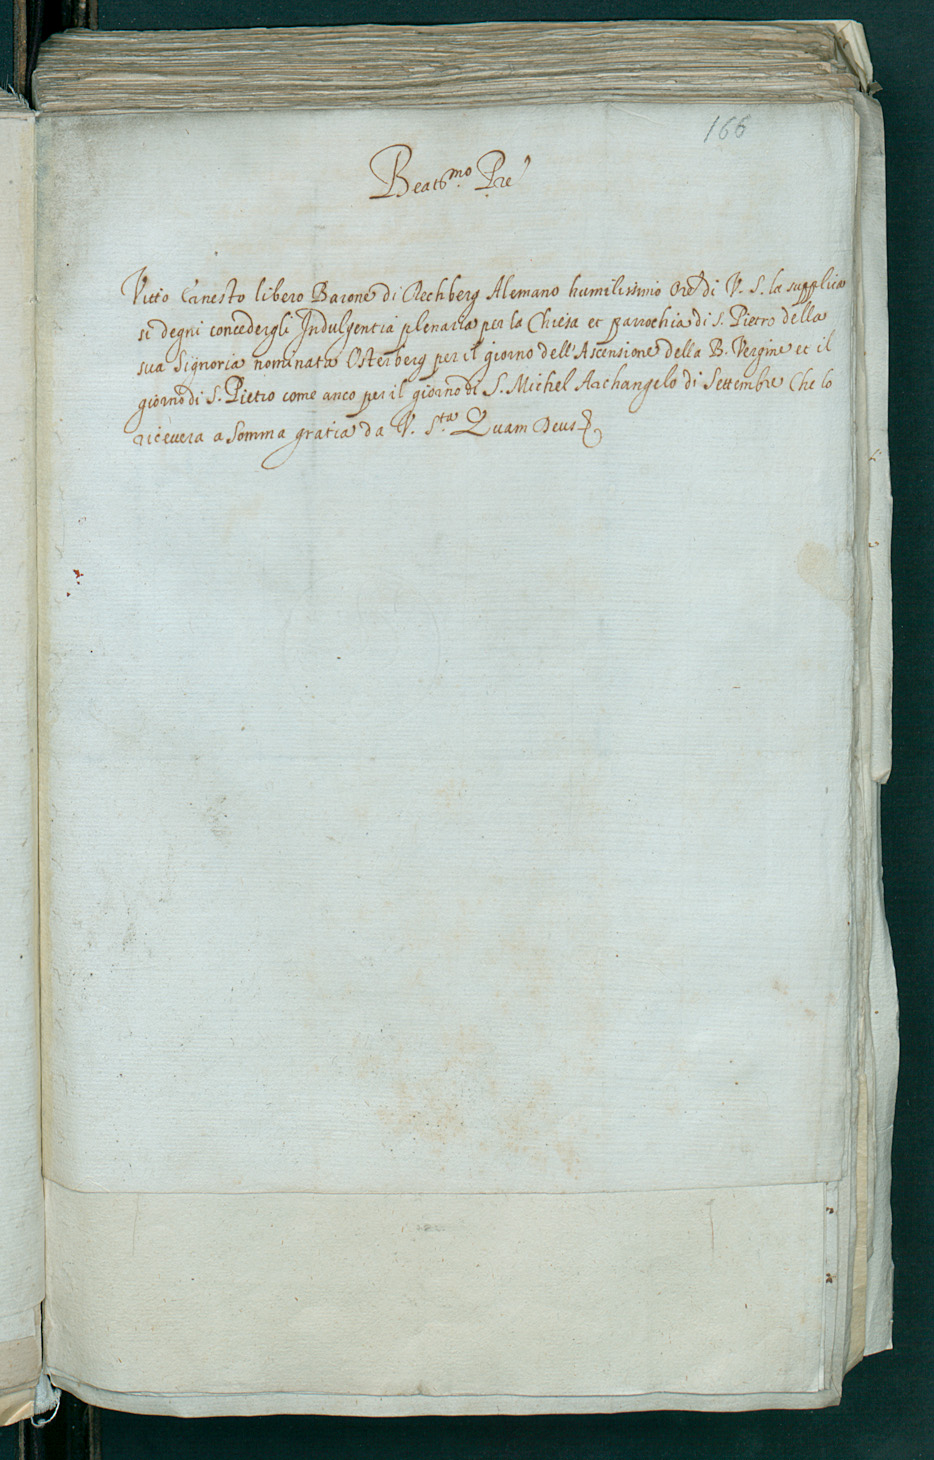 166
Beatis.mo P.re
Vitto Ernesto libero Barone di Rechberg Alemano humilissimo Ore di V. S. la supplica
si degni concedergli Indulgentia plenaria per la Chiesa et parrochia di S. Pietro della
sua Signoria nominata Osterberg per il giorno dell'Ascensione della B. Vergine et il
giorno di S. Pietro come anco per il giorno di S. Michel Archangelo di Settembre Che lo
ricevera a somma gratia da V. S.ta Quam Deus